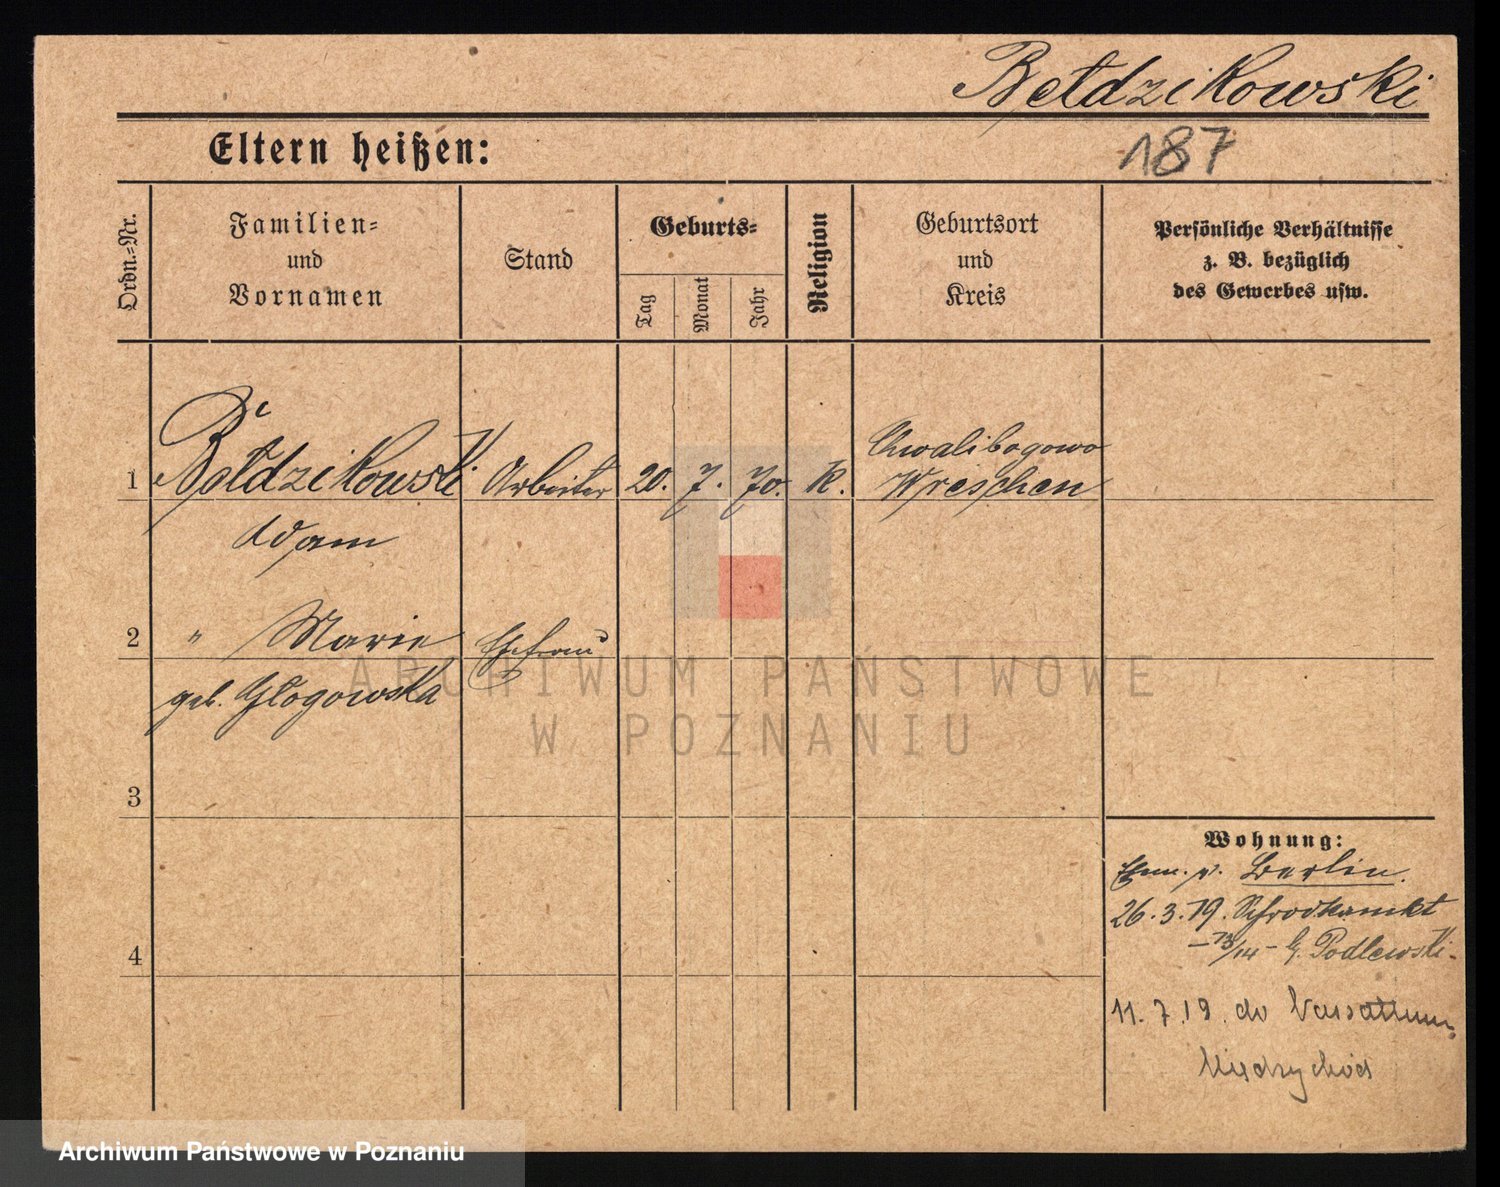 Bełdzikowski
Eltern heißen:
187
Ordn.-Nr.
Familien-
und
Vornamen
Stand
Geburts-
Tag
Monat
Jahr
Religion
Geburtsort
und
Kreis
Persönliche Verhältnisse
z. B. bezüglich
des Gewerbes usw.
1
Bełdzikowski
Arbeiter
20.
7.
70.
K.
Chwalibogowo
Wreschen
Adam
2
" Marie
Ehefrau
geb. Głogowska
ARCHIWUM PAŃSTWOWE
W POZNANIU
3
Wohnung:
v. Berlin.
26.3.19. Schrodkamarkt
4
- 13/14 - b. Podlewski.
11.7.19. do
Międzychód
Archiwum Państwowe w Poznaniu